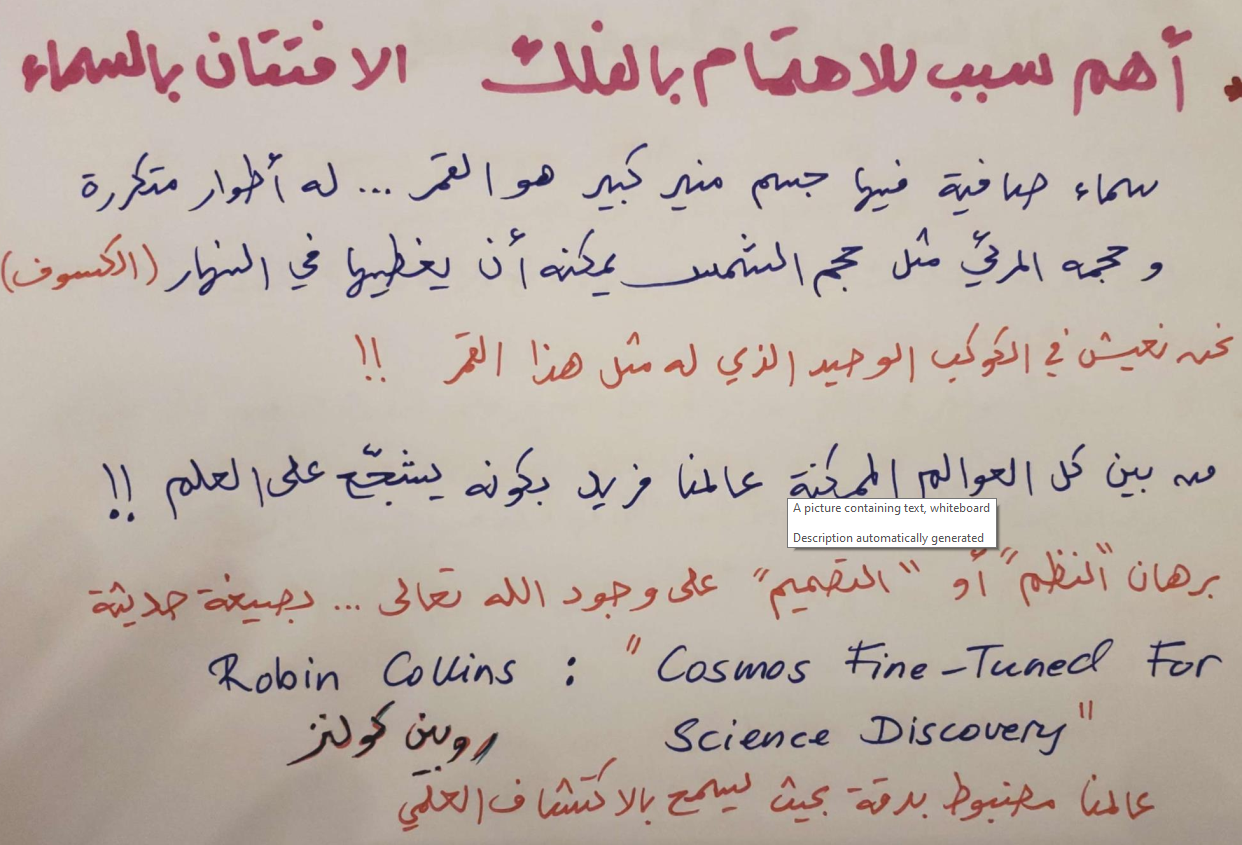 • أهم سبب للاهتمام بالفلك الافتتان بالسماء
سماء صافية فيها جسم منير كبير هو القمر ... له أطوار متكررة
وحجمه المرئيّ مثل حجم الشمس يمكنه أن يغطيها في النهار (الكسوف)
نحن نعيش في الكوكب الوحيد الذي له مثل هذا القمر !!
من بين كل العوالم الممكنة عالمنا فريد بكونه يشجّع على العلم !!
A picture containing text, whiteboard
Description automatically generated
برهان "النظم" أو "التصميم" على وجود الله تعالى ... بصيغة حديثة
Robin Collins : "Cosmos Fine-Tuned For
Science Discovery"
روبين كولنز
عالمنا مضبوط بدقة بحيث يسمح بالاكتشاف العلمي